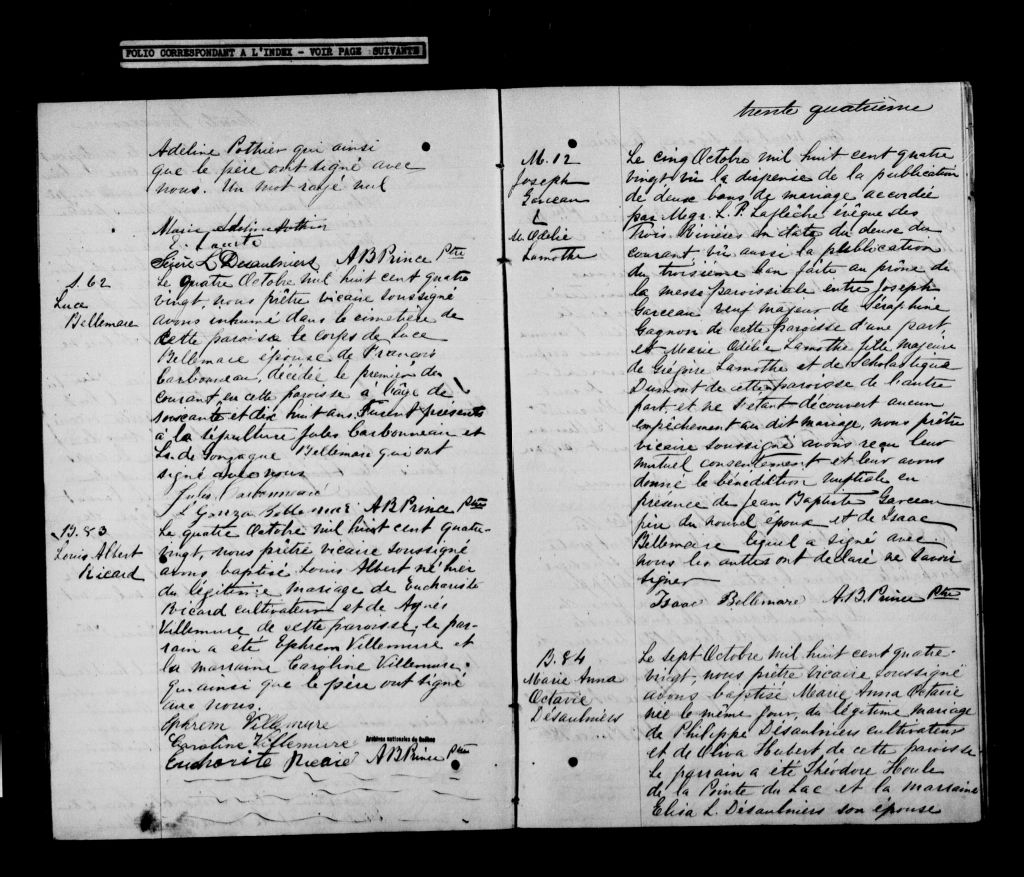 FOLIO CORRESPONDANT A L'INDEX - VOIR PAGE SUIVANTE
Adeline Pothier qui ainsi
que le père ont signé avec
nous. Un mot rayé nul
Marie Adeline Pothier
Sévère L Desaulniers A B Prince Ptre
S. 62
Luce
Bellemare
Le quatre Octobre mil huit cent quatre
vingt, nous prêtre vicaire soussigné
avons inhumé dans le cimetière de
cette paroisse le corps de Luce
Bellemare épouse de François
Carbonneau, décédée le premier du
courant, en cette paroisse à l'âge de
soixante et dix huit ans. Furent présents
à la sépulture Jules Carbonneau et
Ls. de Gonzague Bellemare qui ont
signé avec nous
Jules Carbonneau
L Gonzag Bellemare A B Prince Ptre
B. 83
Louis Albert
Ricard
Le quatre Octobre mil huit cent quatre-
vingt, nous prêtre vicaire soussigné
avons baptisé Louis Albert né hier
du légitime mariage de Euchariste
Ricard cultivateur et de Agnès
Villemure de cette paroisse, le par-
rain a été Ephrem Villemure et
la marraine Caroline Villemure.
qui ainsi que le père ont signé
avec nous.
Ephrem Villemure
Caroline Villemure
Archives nationales du Québec
Eucharite Ricard A B Prince Ptre
trente quatrième
M. 12
Joseph
Garceau
&
M. Odélie
Lamothe
Le cinq Octobre mil huit cent quatre
vingt vû la dispense de la publication
de deux bans de mariage accordée
par Mgr. L. F. Laflèche évêque des
Trois-Rivières en date du deux du
courant, vû aussi la publication
du troisième ban faite au prône de
la messe paroissiale entre Joseph
Garceau veuf majeur de Séraphine
Gagnon de cette paroisse d'une part,
et Marie Odélie Lamothe fille majeure
de Grégoire Lamothe et de Scholastique
Dumont de cette paroisse de l'autre
part, et ne s'etant découvert aucun
empêchement au dit mariage, nous prêtre
vicaire soussigné avons reçu leur
mutuel consentement et leur avons
donné la bénédiction nuptiale en
présence de Jean Baptiste Garceau
père du nouvel époux et de Isaac
Bellemare lequel a signé avec
nous les autres ont déclaré ne savoir
signer
Isaac Bellemare A. B. Prince Ptre
B. 84
Marie Anna
Octavie
Désaulniers
Le sept Octobre mil huit cent quatre-
vingt, nous prêtre vicaire soussigné
avons baptisé Marie Anna Octavie
née le même jour, du légitime mariage
de Philippe Désaulniers cultivateur
et de Oliva Hubert de cette paroisse
Le parrain a été Théodore Houle
de la Pointe du Lac et la marraine
Elisa L. Désaulniers son épouse